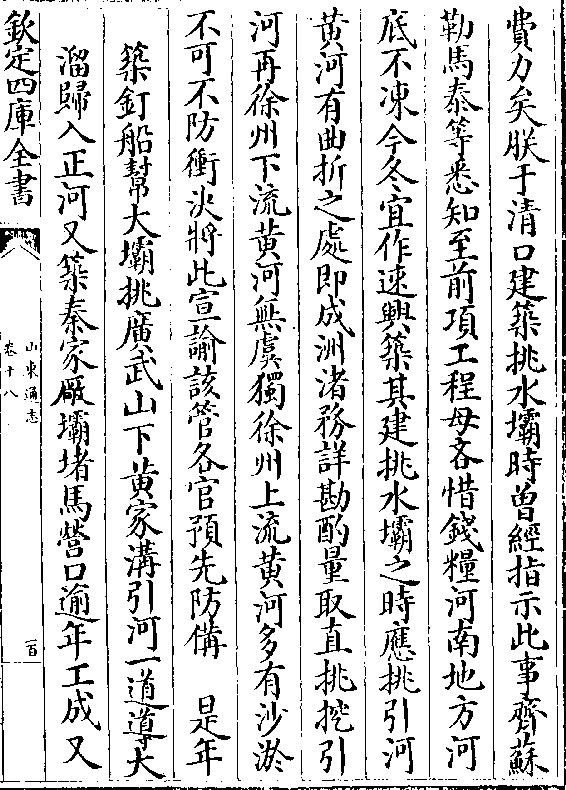 費力矣朕于清口建築挑水壩時曽經指示此事齊蘇
勒馬泰等悉知至前項工程毋吝惜錢糧河南地方河
底不凍今冬宜作速興築其建挑水壩之時應挑引河
黄河有曲折之處即成洲渚務詳勘酌量取直挑挖引
河再徐州下流黄河無虞獨徐州上流黄河多有沙淤
不可不防衝决將此宣諭該管各官預先防備　是年
築釘船幫大壩挑廣武山下黄家溝引河一道導大
溜歸入正河又築秦家厰壩堵馬營口逾年工成又
欽定四庫全書
山東通志
卷十八
一百